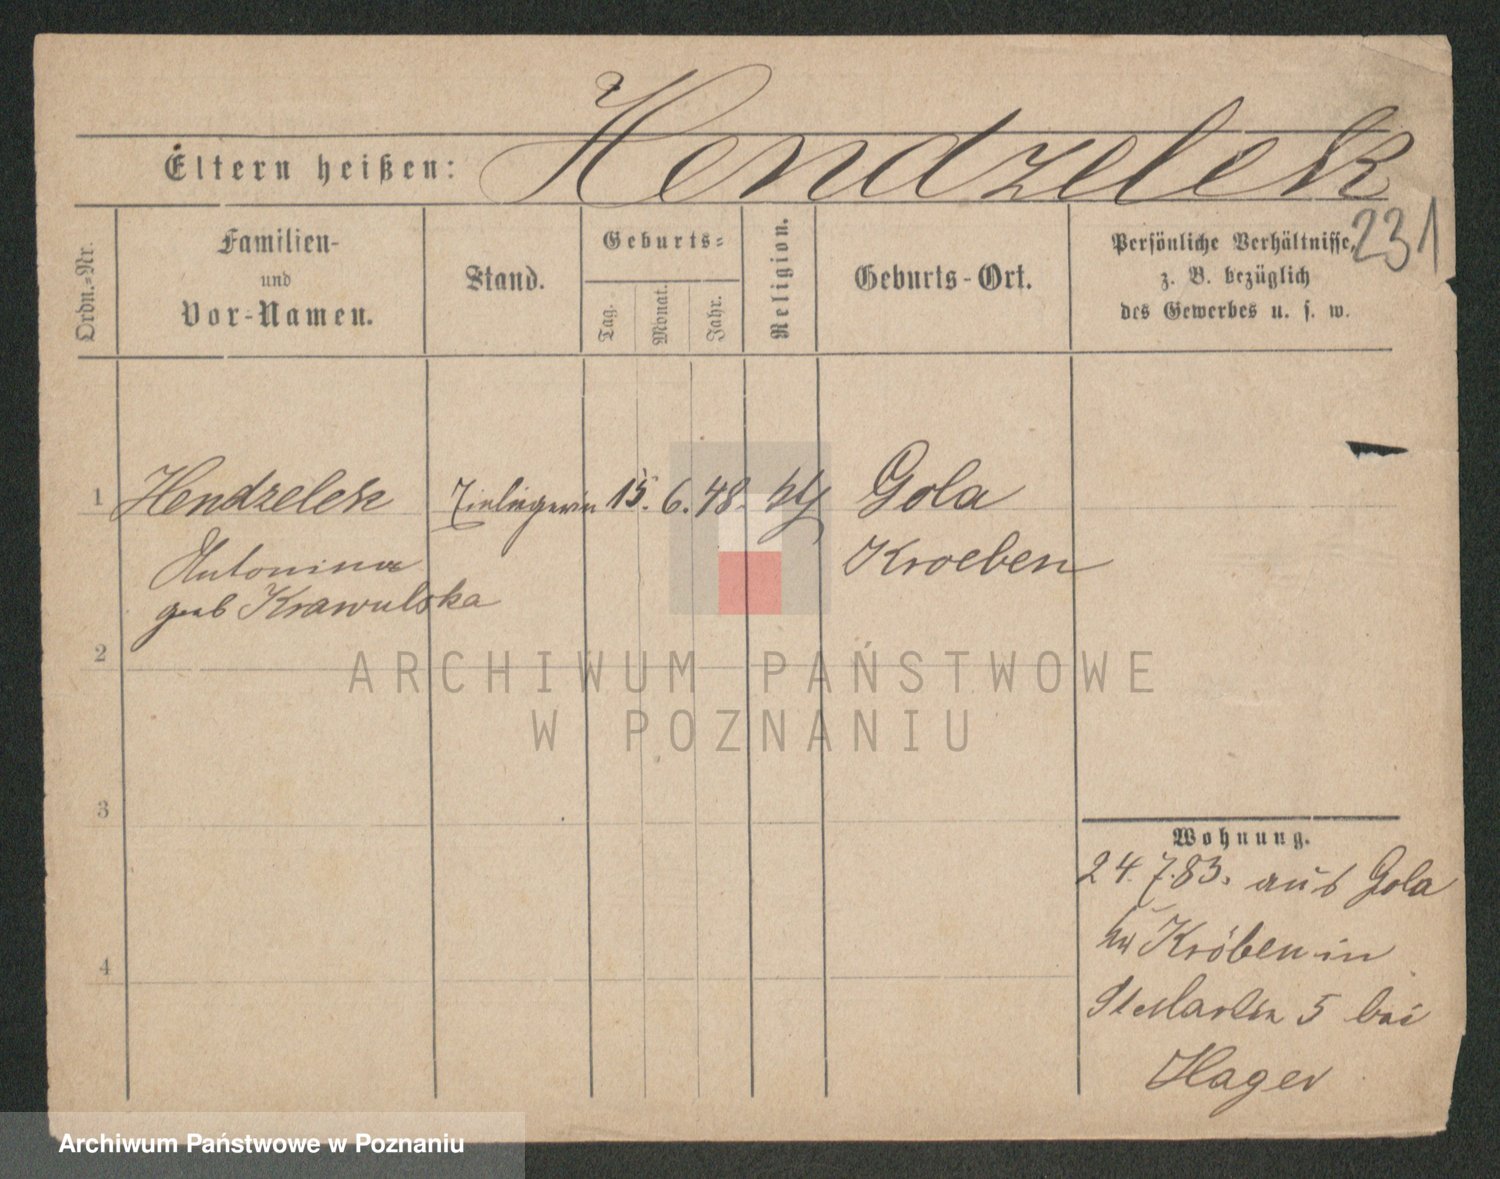 Eltern heißen: Hendzelek
231
Ordn.-Nr.
Familien-
und
Vor-Namen.
Stand.
Geburts-
Tag.
Monat.
Jahr.
Religion.
Geburts-Ort.
Persönliche Verhältnisse,
z. B. bezüglich
des Gewerbes u. s. w.
1 Hendzelek 15. 6. 48. Gola
Antonina Kroeben
geb Krawulska
2
3
4
Wohnung.
24.7.83. aus Gola
Kröben in
St Martin 5 bei
Hager
ARCHIWUM PAŃSTWOWE
W POZNANIU
Archiwum Państwowe w Poznaniu